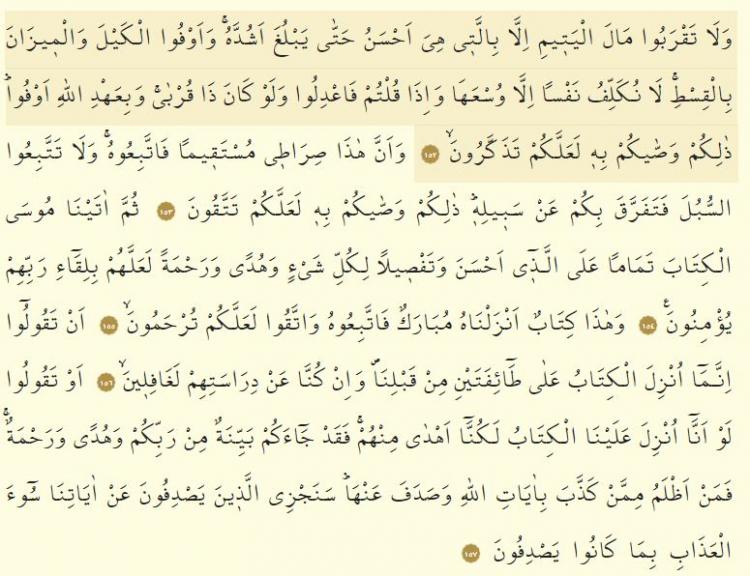 وَلَا تَقْرَبُوا مَالَ الْيَتٖيمِ اِلَّا بِالَّتٖي هِيَ اَحْسَنُ حَتّٰى يَبْلُغَ اَشُدَّهُۚ وَاَوْفُوا الْكَيْلَ وَالْمٖيزَانَ
بِالْقِسْطِۚ لَا نُكَلِّفُ نَفْسًا اِلَّا وُسْعَهَا وَاِذَا قُلْتُمْ فَاعْدِلُوا وَلَوْ كَانَ ذَا قُرْبٰىۚ وَبِعَهْدِ اللهِ اَوْفُواۜ
ذٰلِكُمْ وَصّٰيكُمْ بِهٖ لَعَلَّكُمْ تَذَكَّرُونَۙ ١٥٢ وَاَنَّ هٰذَا صِرَاطٖي مُسْتَقٖيمًا فَاتَّبِعُوهُۚ وَلَا تَتَّبِعُوا
السُّبُلَ فَتَفَرَّقَ بِكُمْ عَنْ سَبٖيلِهٖۜ ذٰلِكُمْ وَصّٰيكُمْ بِهٖ لَعَلَّكُمْ تَتَّقُونَ ١٥٣ ثُمَّ اٰتَيْنَا مُوسَى
الْكِتَابَ تَمَامًا عَلَى الَّذٖٓي اَحْسَنَ وَتَفْصٖيلًا لِكُلِّ شَيْءٍ وَهُدًى وَرَحْمَةً لَعَلَّهُمْ بِلِقَٓاءِ رَبِّهِمْ
يُؤْمِنُونَۚ ١٥٤ وَهٰذَا كِتَابٌ اَنْزَلْنَاهُ مُبَارَكٌ فَاتَّبِعُوهُ وَاتَّقُوا لَعَلَّكُمْ تُرْحَمُونَۙ ١٥٥ اَنْ تَقُولُٓوا
اِنَّمَٓا اُنْزِلَ الْكِتَابُ عَلٰى طَٓائِفَتَيْنِ مِنْ قَبْلِنَاࣕ وَاِنْ كُنَّا عَنْ دِرَاسَتِهِمْ لَغَافِلٖينَۙ ١٥٦ اَوْ تَقُولُوا
لَوْ اَنَّٓا اُنْزِلَ عَلَيْنَا الْكِتَابُ لَكُنَّٓا اَهْدٰى مِنْهُمْۚ فَقَدْ جَٓاءَكُمْ بَيِّنَةٌ مِنْ رَبِّكُمْ وَهُدًى وَرَحْمَةٌۚ
فَمَنْ اَظْلَمُ مِمَّنْ كَذَّبَ بِاٰيَاتِ اللهِ وَصَدَفَ عَنْهَاۜ سَنَجْزِي الَّذٖينَ يَصْدِفُونَ عَنْ اٰيَاتِنَا سُٓوءَ
الْعَذَابِ بِمَا كَانُوا يَصْدِفُونَ ١٥٧